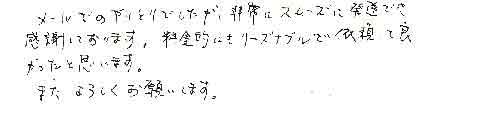 メールでのやりとりでしたが、非常にスムーズに発送でき
感謝しております。料金的にもリーズナブルで依頼して良
かったと思います。
またよろしくお願いします。